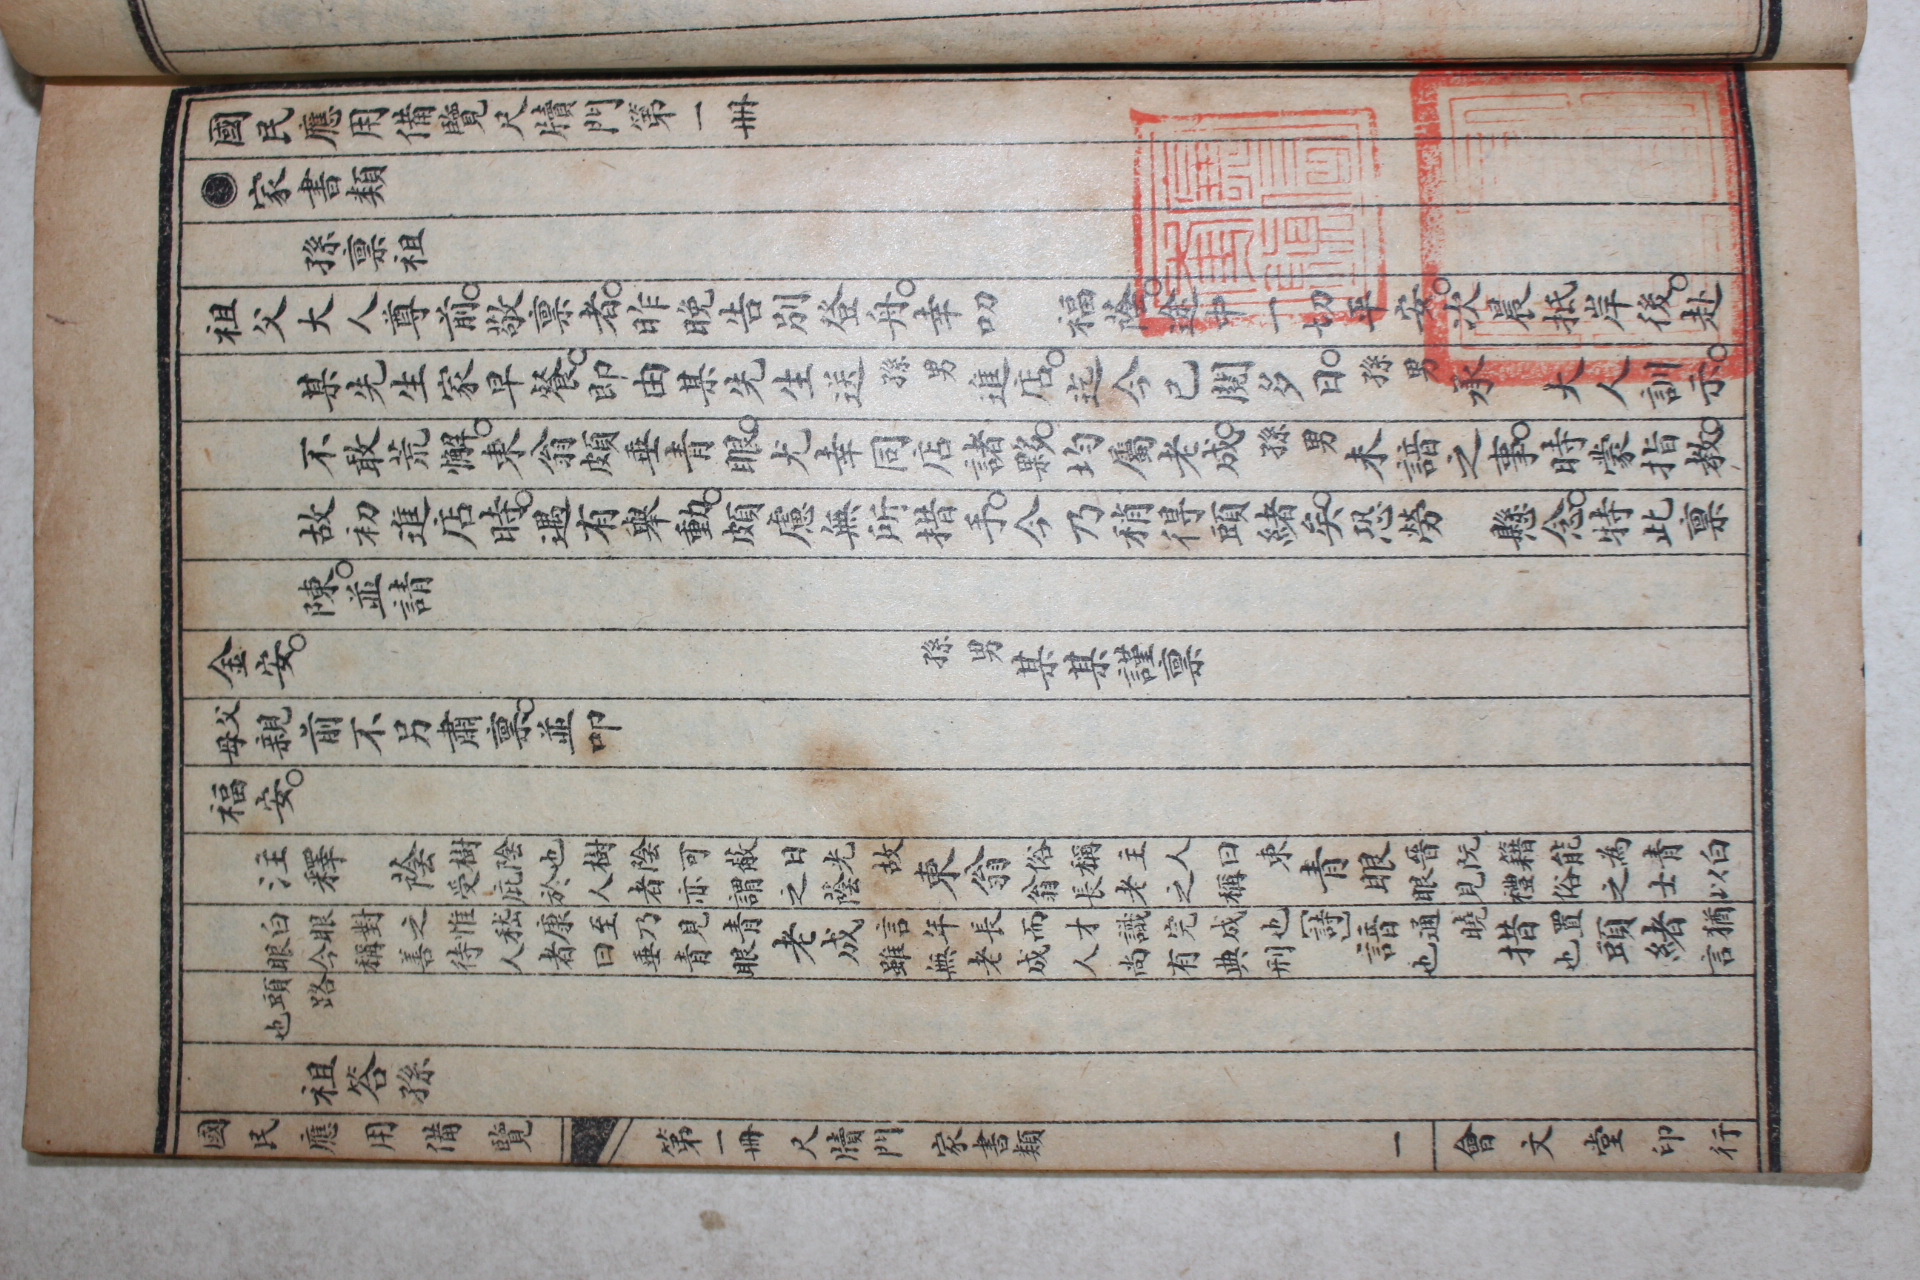 國民應用備覽尺牘門第一冊
●家書類
孫稟祖
祖父大人尊前。敬稟者。昨晚告別登舟。幸叨　福蔭。途中一切平安。次晨抵岸後。赴
某先生家早餐。即由某先生送孫男進店。迄今已閱多日。孫男承　大人訓示。
不敢荒懈。東翁頗垂青眼。尤幸同店諸夥。均屬老成。孫男未諳之事。時蒙指教。
故初進店時。遇有舉動。頗慮無所措手。今乃稍得頭緒矣。恐勞　懸念。特此稟
陳。並請
金安。　孫男某某謹稟
父母親前不另肅稟。並叩
福安。
注釋　蔭樹陰也樹陰可蔽日光故受庇於人者亦謂之蔭　東翁俗稱主人曰東翁長老之稱　青眼晉阮籍能為青白眼見禮俗之士以白
白眼對之惟嵇康至乃見青眼今稱善待人者曰垂青眼　老成言年長而才識完成也[詩]雖無老成人尚有典刑　諳通曉也　措置也　頭緒猶言
頭路也
祖答孫
國民應用備覽　第一冊　尺牘門　家書類　一　會文堂印行